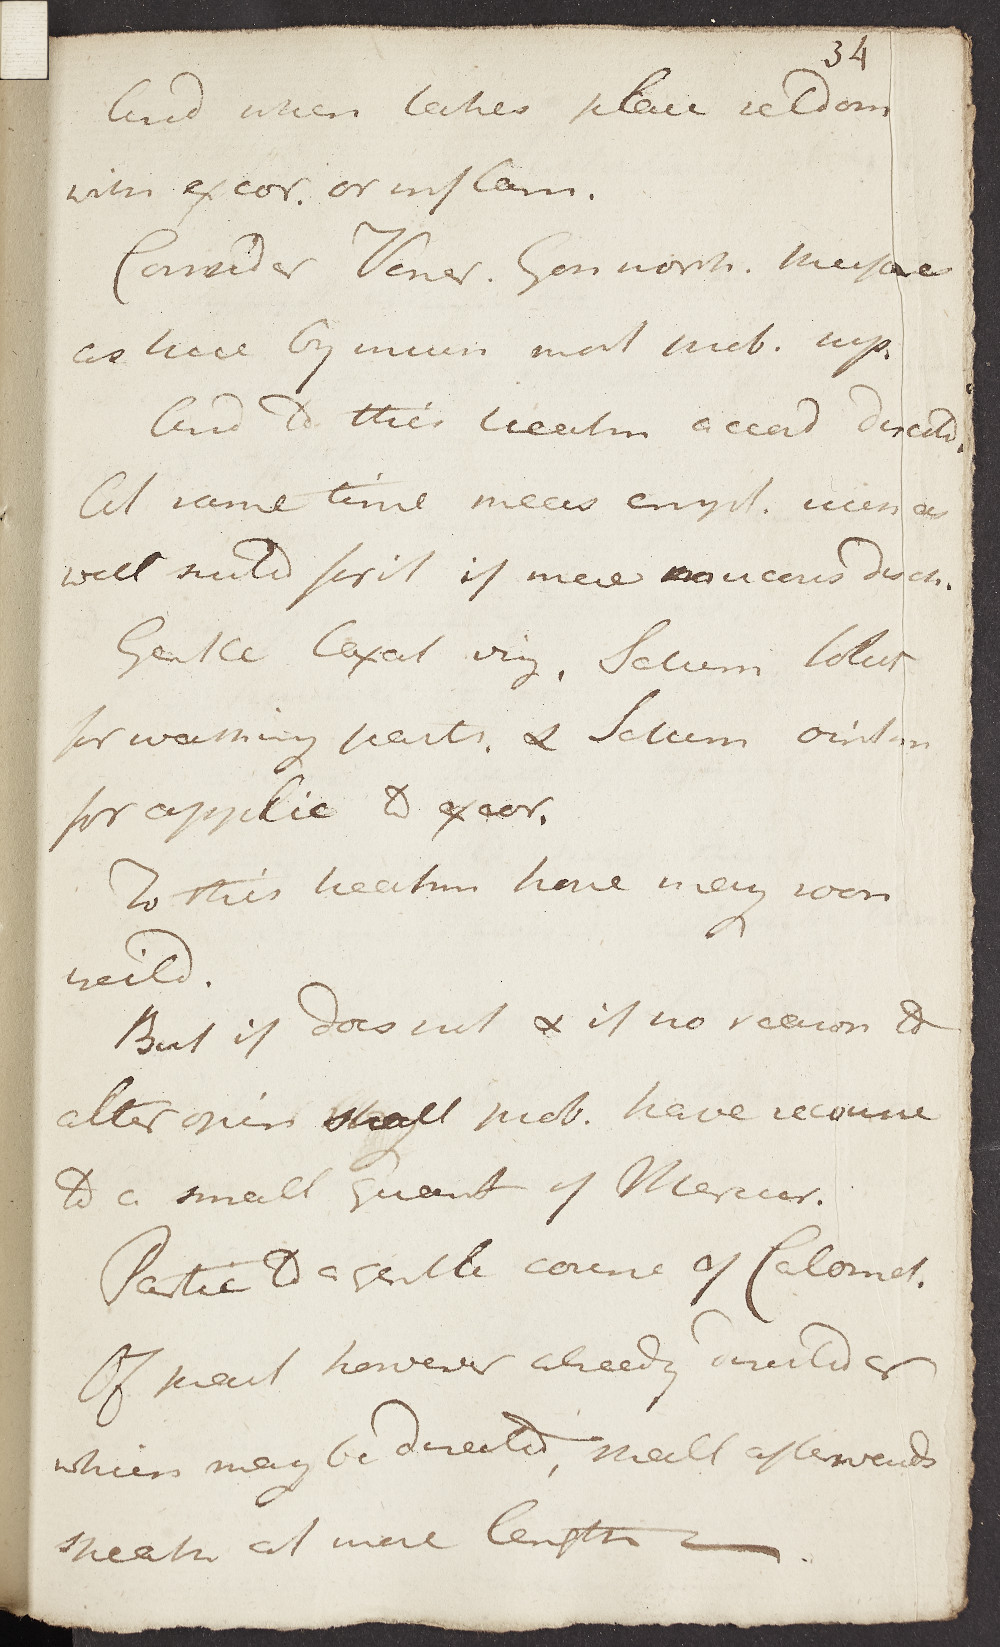 34
And when takes place seldom
with excor. or inflam.
Consider Vener. Gonnorh. therefore
as here by much most prob. sup.
And to this treatm accord directd.
At same time meas empl. such as
well suited for it if mere mucous disch.
Gentle laxat viz, Saturn Solut
for washing parts. & Saturn ointm
for applic to excor.
To this treatmn here may soon
yeild.
But if does not & if no reason to
alter opin shall prob. have recourse
to a small quant of Mercur.
Partic to a gentle course of Calomel.
Of pract however already directed or
which may be directed, shall afterwards
speak at more length